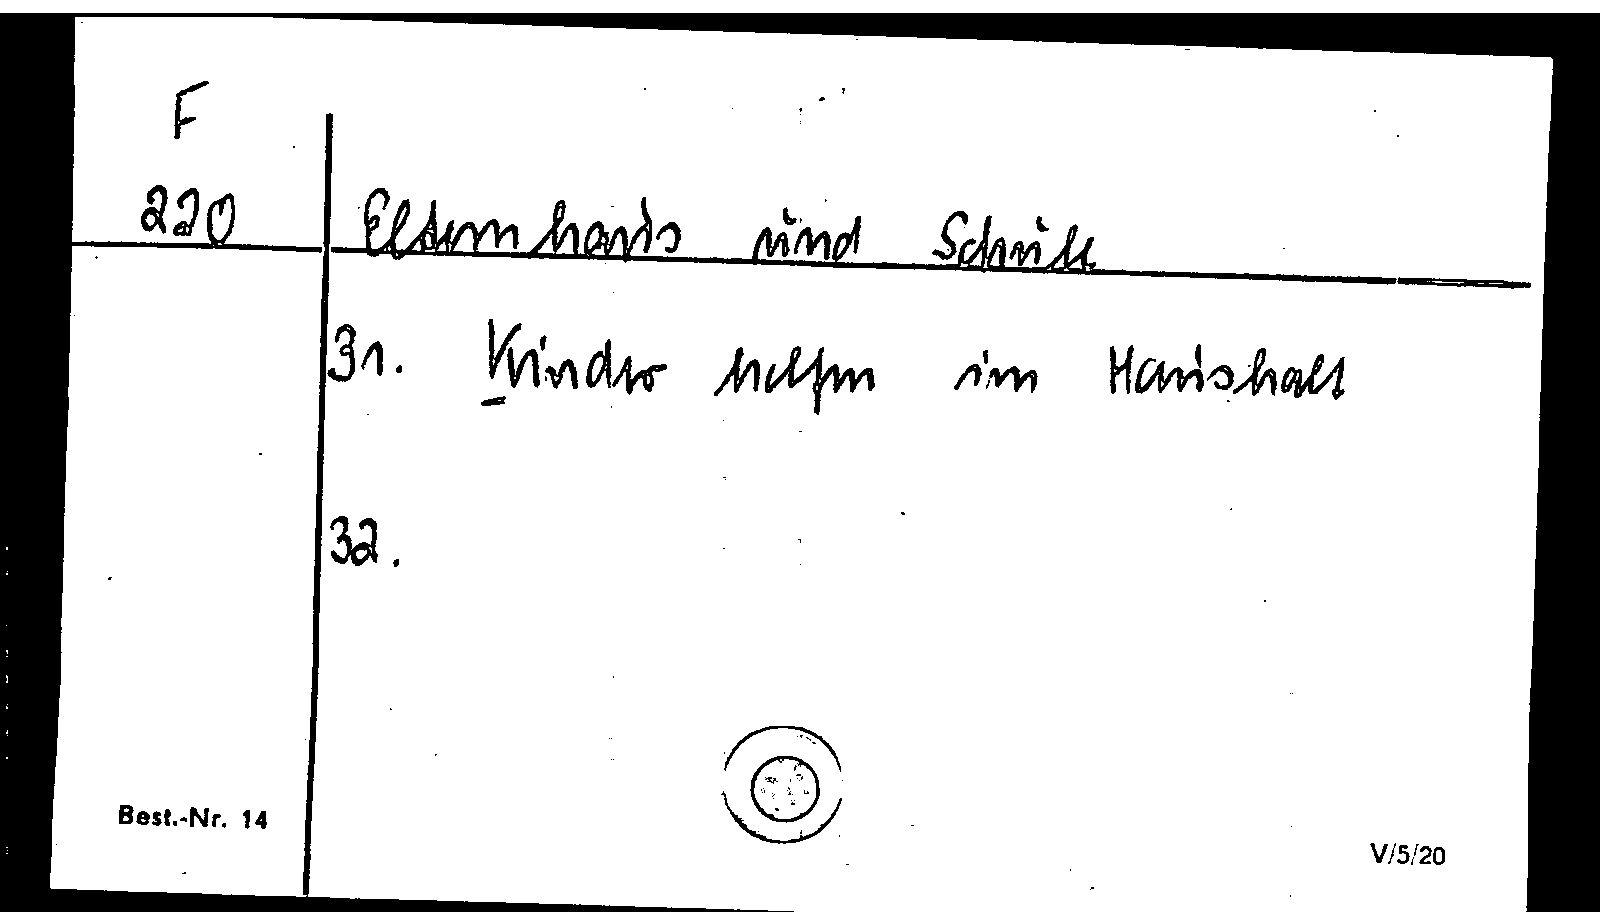 F
220 Elternhaus und Schule
31. Kinder helfen im Haushalt
32.
Best.-Nr. 14
V/5/20